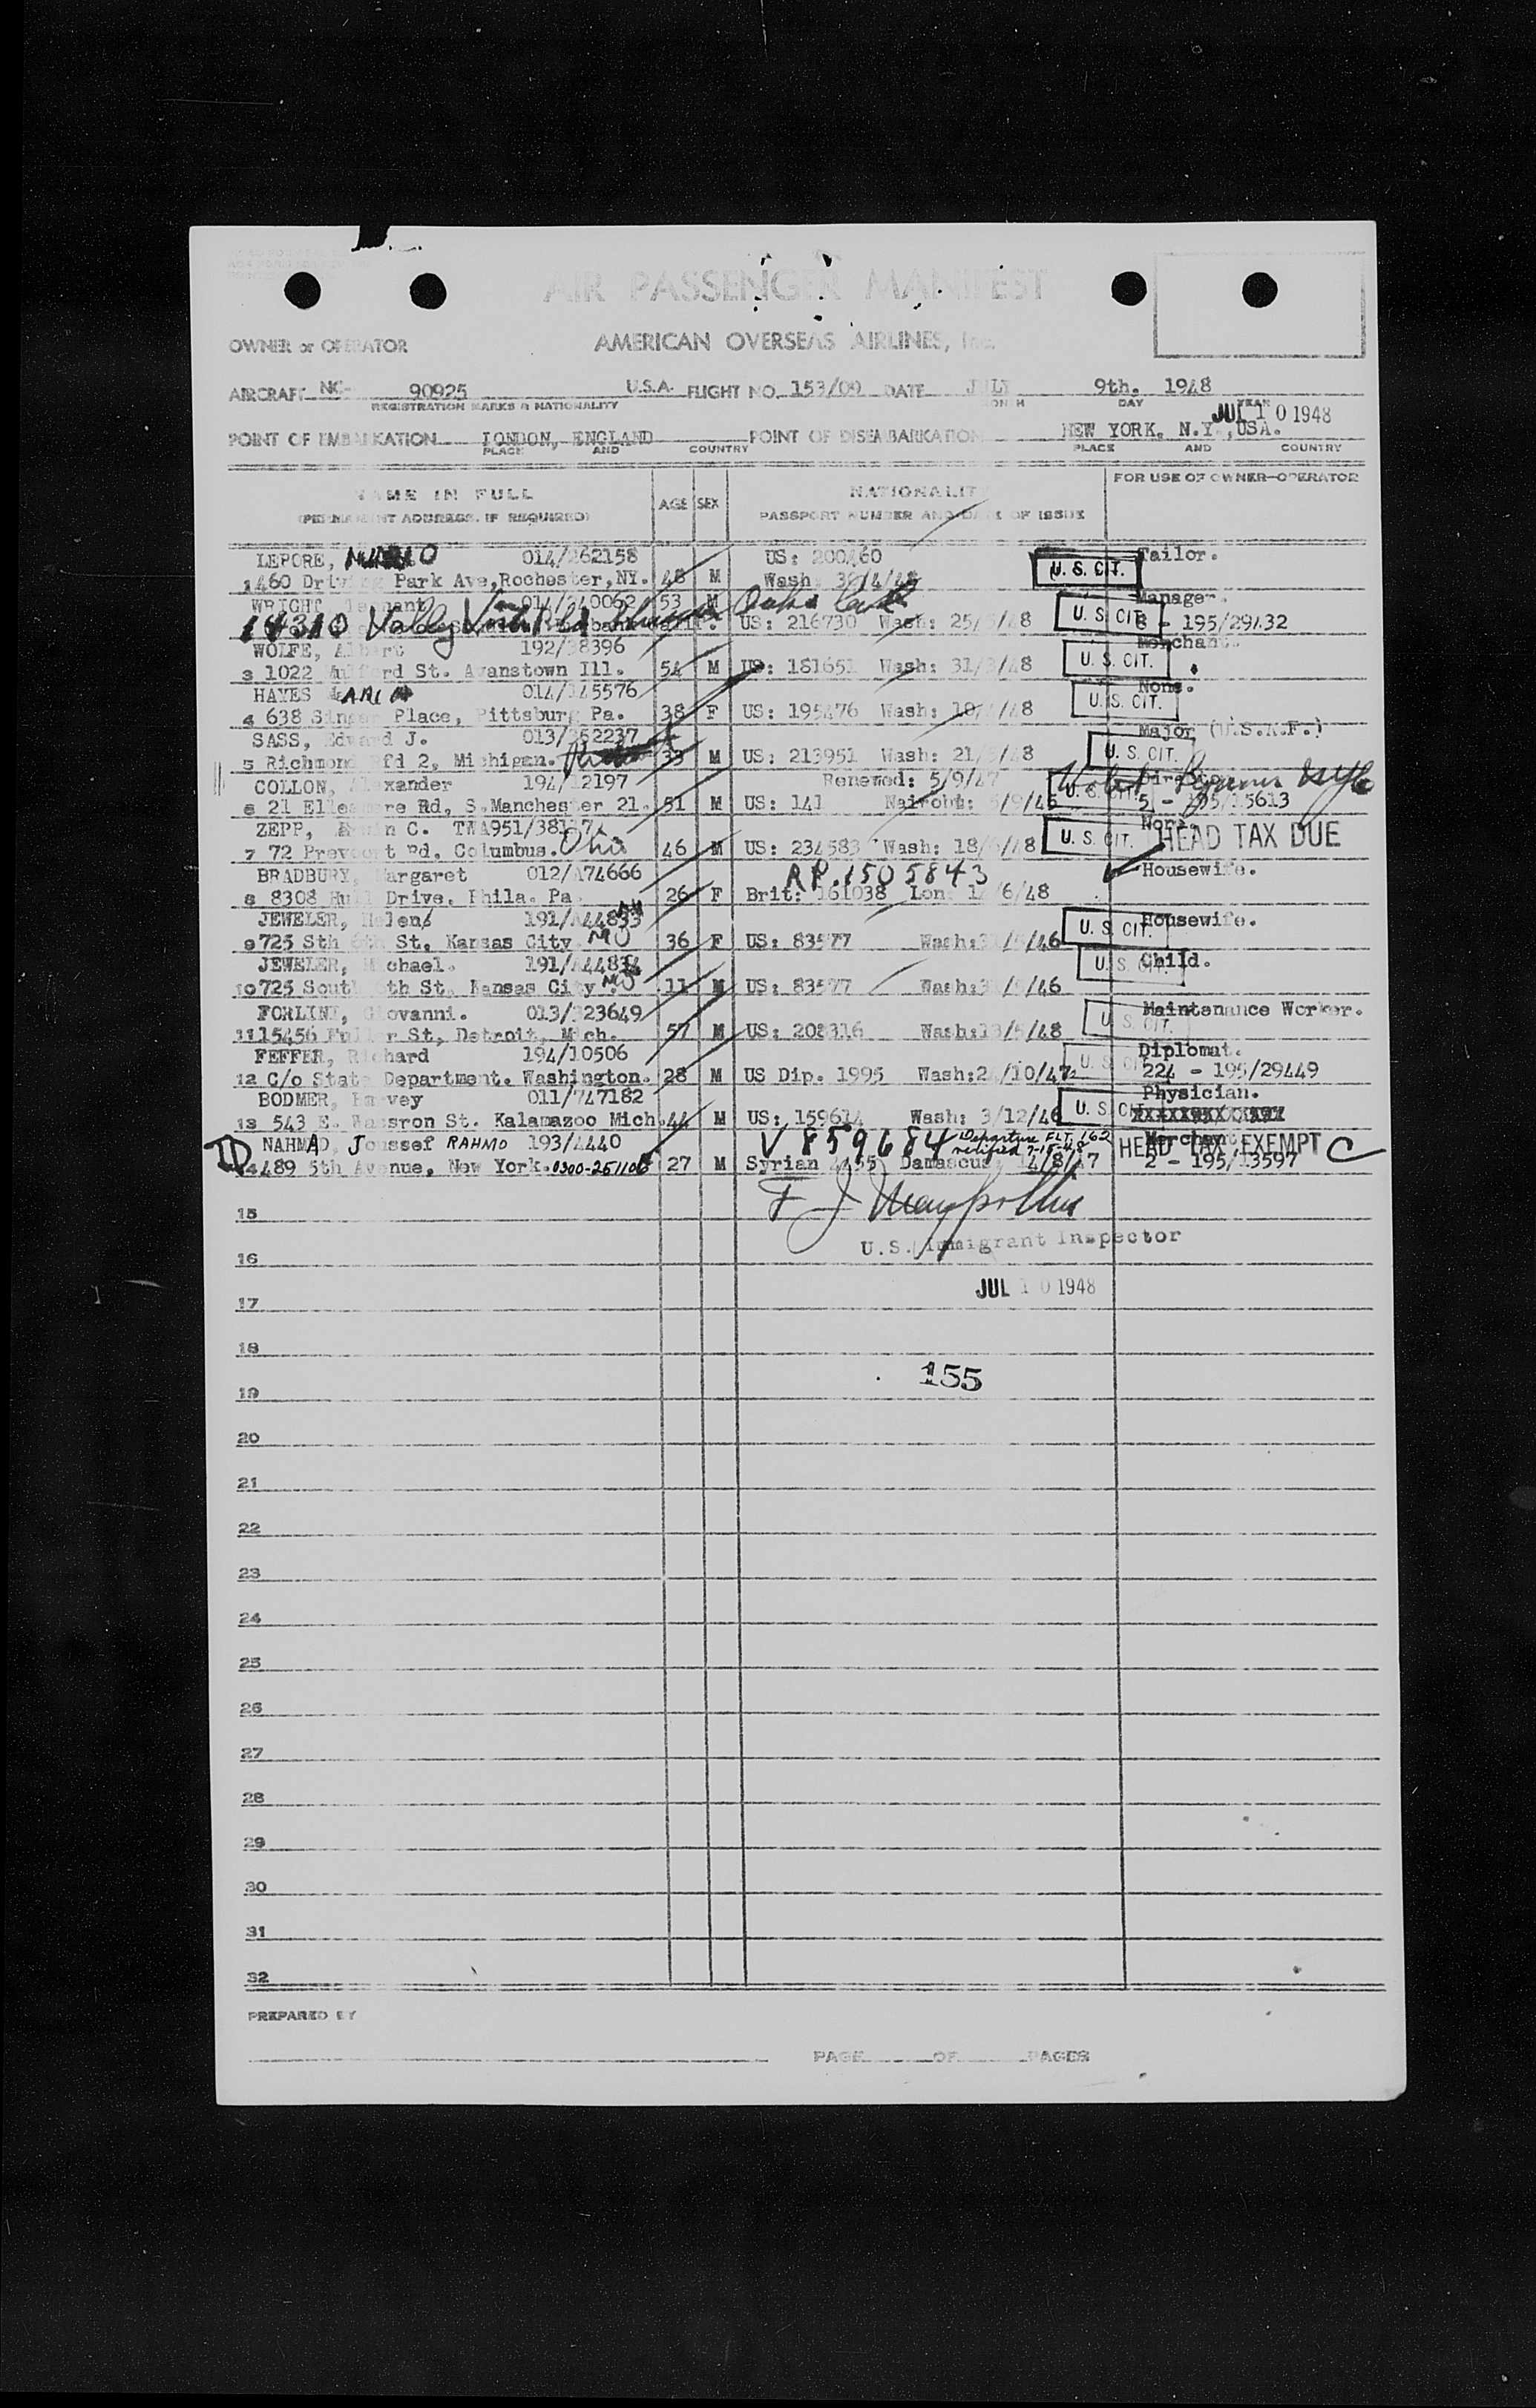 AIR PASSENGER MANIFEST
OWNER or OPERATOR AMERICAN OVERSEAS AIRLINES, Inc.
AIRCRAFT NC- 90925 U.S.A. FLIGHT NO. 153/09 DATE JULY 9th. 1948
REGISTRATION MARKS & NATIONALITY MONTH DAY YEAR
JUL 10 1948
POINT OF EMBARKATION LONDON, ENGLAND POINT OF DISEMBARKATION NEW YORK, N.Y.,USA.
PLACE AND COUNTRY PLACE AND COUNTRY
NAME IN FULL AGE SEX NATIONALITY FOR USE OF OWNER-OPERATOR
(PERMANENT ADDRESS, IF REQUIRED) PASSPORT NUMBER AND DATE OF ISSUE
LEPORE, 014/262158 US: 200460 Tailor.
1 460 Driving Park Ave,Rochester,NY. 48 M Wash: U. S. CIT.
WRIGHT 014/240062 53 M Manager.
14310 Valley US: 216730 Wash: 25/ /48 U. S. CIT. 8 - 195/29432
WOLFE, Albert 192/38396 Merchant.
3 1022 St. Avanstown Ill. 54 M US: 181651 Wash: 31/ /48 U. S. CIT.
HAYES MARIA 014/145576 None.
4 638 Singer Place, Pittsburg Pa. 38 F US: 195476 Wash: /48 U. S. CIT.
SASS, Edward J. 013/352237 Major
5 Richmond Rfd 2, Michigan. 33 M US: 213951 Wash: 21/ /48 U. S. CIT.
COLLON, Alexander 194/12197 Renewed: 5/9/47 Director
6 21 Ellesmere Rd, S.Manchester 21. 51 M US: 141 Nairobi: /9/45 U. S. CIT. 5 - 195/15613
ZEPP, C. TWA951/381 7 None.
7 72 Prevoort Rd, Columbus. Ohio 46 M US: 234583 Wash: 18/ /48 U. S. CIT. HEAD TAX DUE
BRADBURY, Margaret 012/A74666 RP.1505843 Housewife.
8 8308 Drive. Phila. Pa. 26 F Brit: 161038 Lon: /6/48
JEWELER, Helene 191/A44833 Housewife.
9 725 Sth 6th St, Kansas City MO 36 F US: 83577 Wash: /46 U. S. CIT.
JEWELER, Michael. 191/A44834 Child.
10 725 South 6th St, Kansas City MO 11 M US: 83577 Wash: /46 U. S. CIT.
FORLINI, Giovanni. 013/323649 Maintenance Worker.
11 15456 Fuller St, Detroit, Mich. 57 M US: 208316 Wash:13/5/48 U. S. CIT.
FEFFER, Richard 194/10506 Diplomat.
12 C/o State Department. Washington. 28 M US Dip. 1995 Wash:2 /10/47 U. S. CIT. 224 - 195/29449
BODMER, Harvey 011/747182 Physician.
13 543 E. St. Kalamazoo Mich. 44 M US: 159614 Wash: 3/12/46 U. S. CIT.
ID NAHMAD, Joussef RAHMO 193/4440 V 859684 Departure FLT. 162 notified 7-15-48 Merchant HEAD TAX EXEMPT C
14 489 5th Avenue, New York. 0300-251106 27 M Syrian Damascus 14/8/47 2 - 195/13597
15
U.S. Immigrant Inspector
16
JUL 10 1948
17
18
155
19
20
21
22
23
24
25
26
27
28
29
30
31
32
PREPARED BY
PAGE OF PAGES